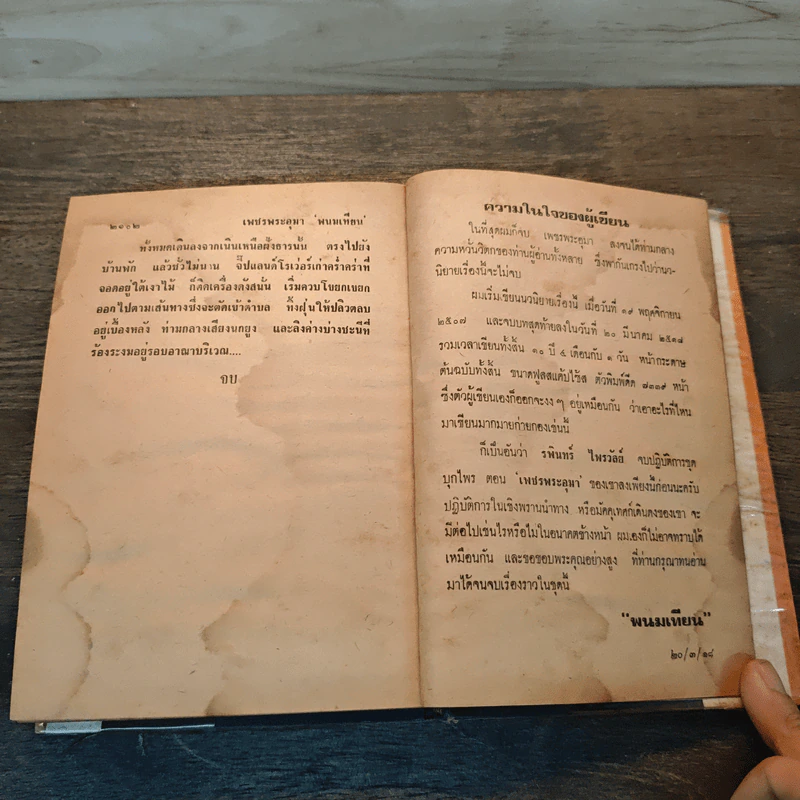 ๒๑๐๒
เพชรพระอุมา 'พนมเทียน'
ทั้งหมดเดินลงจากเนินเหนือฝั่งธารนั้น ตรงไปยัง
บ้านพัก แล้วชั่วไม่นาน จี๊ปแลนด์โรเว่อร์เก่าคร่ำคร่าที่
จอดอยู่ใต้เงาไม้ ก็ติดเครื่องดังสนั่น เริ่มควบโขยกเขยก
ออกไปตามเส้นทางซึ่งจะตัดเข้าตำบล ทิ้งฝุ่นให้ปลิวตลบ
อยู่เบื้องหลัง ท่ามกลางเสียงนกยูง และลิงค่างบางชะนีที่
ร้องระงมอยู่รอบอาณาบริเวณ....
จบ
ความในใจของผู้เขียน
ในที่สุดผมก็จบ เพชรพระอุมา ลงจนได้ท่ามกลาง
ความหวั่นวิตกของท่านผู้อ่านทั้งหลาย ซึ่งพากันเกรงไปว่านว-
นิยายเรื่องนี้จะไม่จบ
ผมเริ่มเขียนนวนิยายเรื่องนี้ เมื่อวันที่ ๑๙ พฤศจิกายน
๒๕๐๗ และจบบทสุดท้ายลงในวันที่ ๒๐ มีนาคม ๒๕๑๘
รวมเวลาเขียนทั้งสิ้น ๑๐ ปี ๔ เดือนกับ ๑ วัน หน้ากระดาษ
ต้นฉบับทั้งสิ้น ขนาดฟูลสแค้ปไซ้ส ตัวพิมพ์ดีด ๗๓๑๙ หน้า
ซึ่งตัวผู้เขียนเองก็ออกจะงง ๆ อยู่เหมือนกัน ว่าเอาอะไรที่ไหน
มาเขียนมากมายก่ายกองเช่นนี้
ก็เป็นอันว่า รพินทร์ ไพรวัลย์ จบปฏิบัติการชุด
บุกไพร ตอน 'เพชรพระอุมา' ของเขาลงเพียงนี้ก่อนนะครับ
ปฏิบัติการในเชิงพรานนำทาง หรือมัคคุเทศก์เดินดงของเขา จะ
มีต่อไปเช่นไรหรือไม่ในอนาคตข้างหน้า ผมเองก็ไม่อาจทราบได้
เหมือนกัน และขอขอบพระคุณอย่างสูง ที่ท่านกรุณาทนอ่าน
มาได้จนจบเรื่องราวในชุดนี้
"พนมเทียน"
๒๐/๓/๑๘